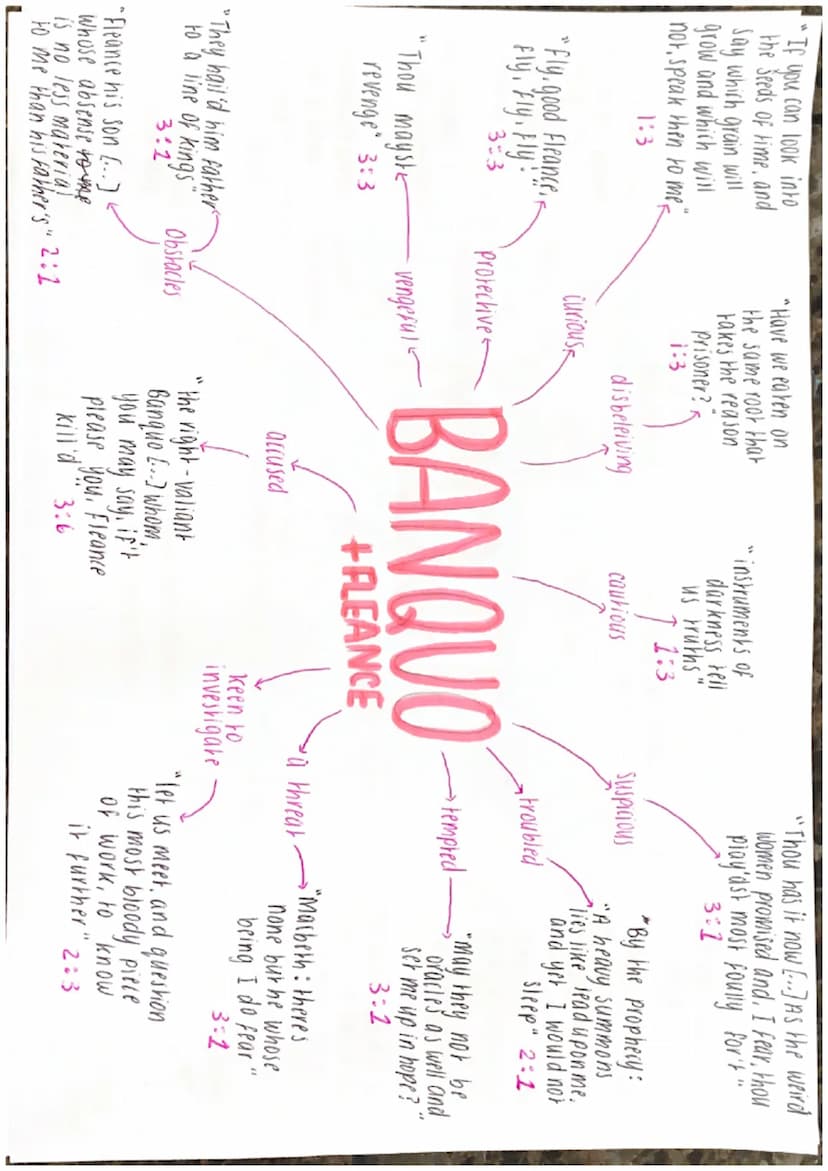 BANQUO
+ FLEANCE
curious
"If you can look into
the seeds of time, and
say which grain will
grow and which will
not, speak then to me"
1:3
disbeleiving
"Have we eaten on
the same root that
takes the reason
prisoner?"
1:3
cautious
"instruments of
darkness tell
us truths"
1:3
suspicious
"Thou has it now [...] As the weird
women promised and, I fear, thou
play'dst most foully for't"
3:1
troubled
"By the prophecy:
"A heavy summons
lies like lead upon me,
and yet I would not
sleep" 2:1
tempted
"May they not be
oracles as well and
set me up in hope?"
3:1
a threat
"Macbeth: theres
none but he whose
being I do fear"
3:1
keen to
investigate
"let us meet, and question
this most bloody piece
of work, to know
it further" 2:3
accused
"the right-valiant
Banquo [...] whom,
you may say, if't
please you, Fleance
kill'd" 3:6
obstacles
"They hail'd him father
to a line of kings"
3:1
"Fleance his son [...]
whose absense to me
is no less material
to me than his father's" 2:1
vengeful
"Thou mayst
revenge" 3:3
protective
"Fly, good Fleance,
fly, fly, fly!"
3:3